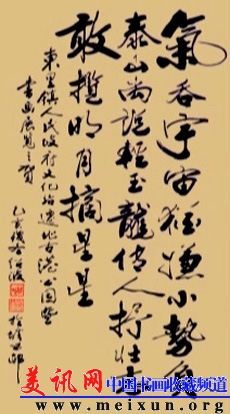 氣吞宇宙猶嫌小勢
泰山尚說輕玉龍傳人抒壯志
敢攬明月摘星星
東里鎮人民政府文化站遷址古港公園暨
書畫展覽之賀
乙亥歲冬
美讯网 中国书画收藏频道
www.meixun.org